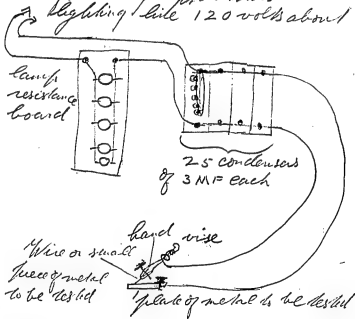 lighting line 120 volts about
lamp
resistance
board
25 condensers
of 3 MF each
hand vise
Wire or small
piece of metal
to be tested
plate of metal to be tested